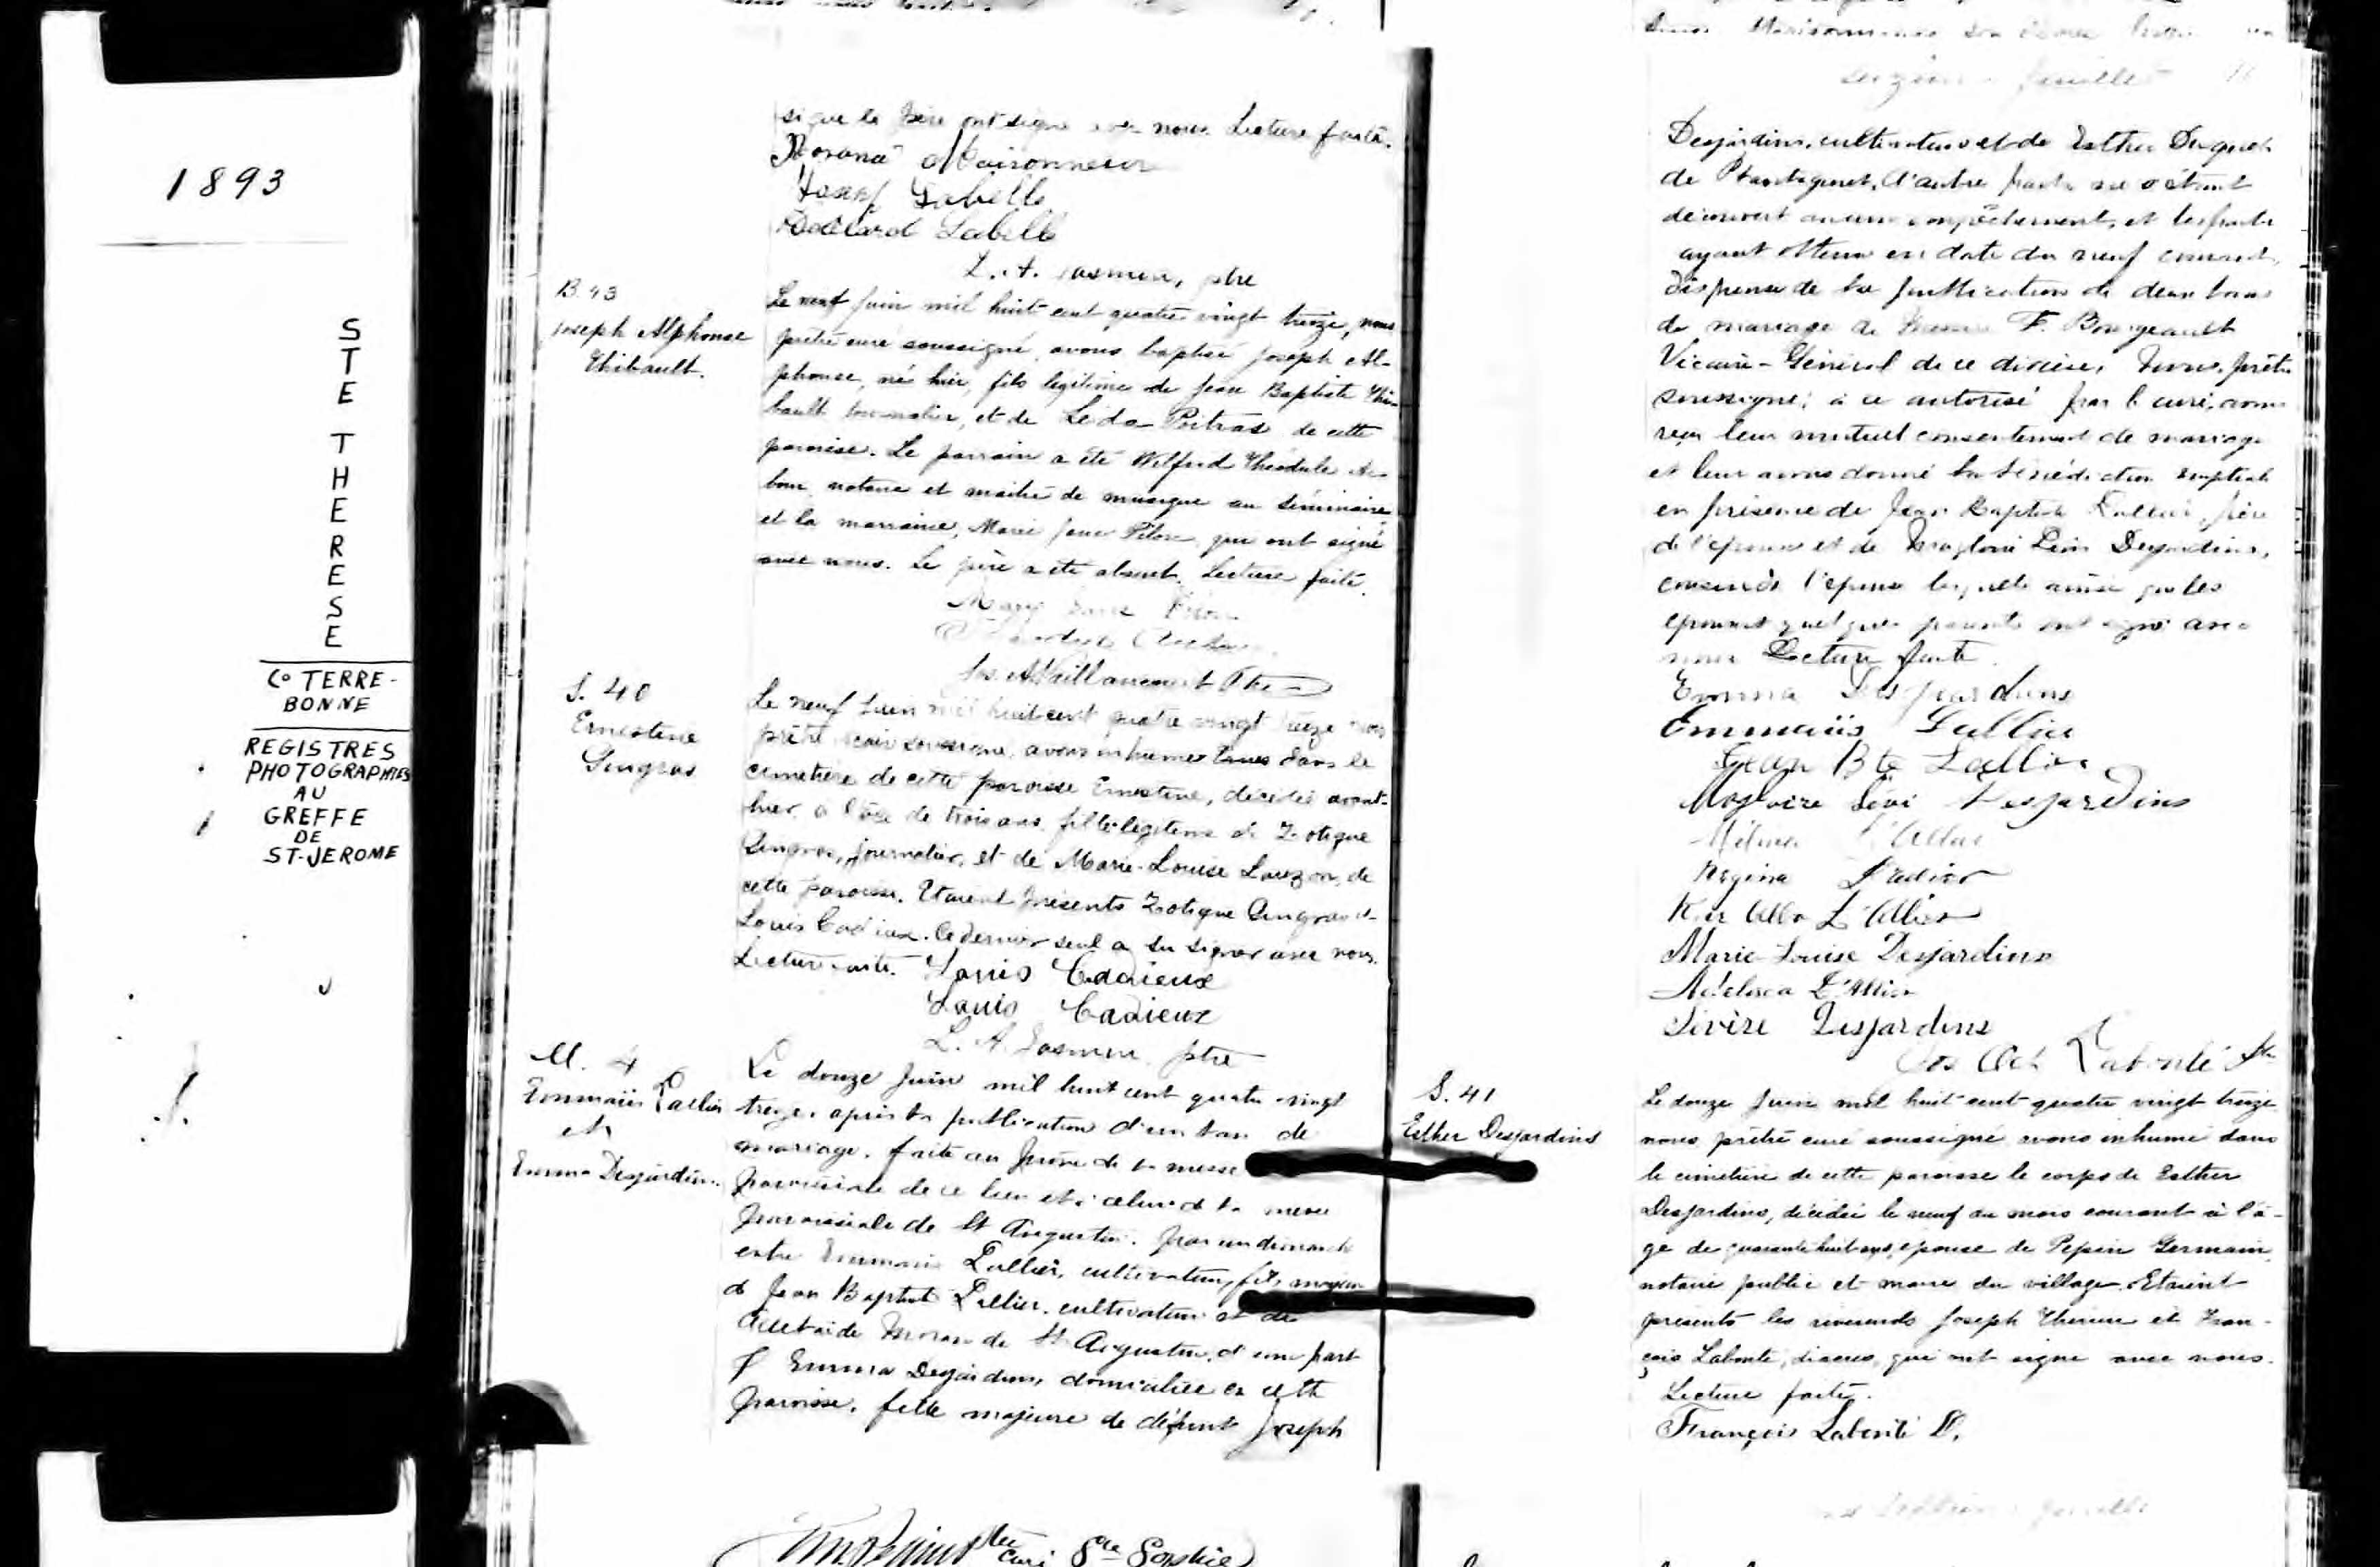 1893
STE THERESE
Co TERRE-
BONNE
REGISTRES
PHOTOGRAPHIES
AU
GREFFE
DE
ST-JEROME
que le père ont signé nous. Lecture faite.
Maisonneuve
Joseph Labelle
Labelle
L. A. Jasmin, ptre
B. 43
Joseph Alphonse
Thibault.
Le neuf juin mil huit cent quatre vingt treize, nous
prêtre curé soussigné, avons baptisé Joseph Al-
phonse, né hier, fils légitime de Jean Baptiste Thi-
bault journalier, et de Leda Poitras de cette
paroisse. Le parrain a été Wilfrid Théodule
notaire et maître de musique au séminaire
et la marraine, Marie Jane Pilon, qui ont signé
avec nous. Le père a été absent. Lecture faite.
Mary Jane Pilon
Jos. A Vaillancourt Ptre
S. 40
Ernestine
Gingras
Le neuf Juin mil huit cent quatre vingt treize nous
prêtre vicaire soussigné, avons inhumé dans le
cimetière de cette paroisse Ernestine, décédée avant-
hier, à l'âge de trois ans, fille légitime de Zotique
Gingras, journalier, et de Marie-Louise Lauzon, de
cette paroisse. Etaient présents Zotique Gingras et
Louis Cadieux. Ce dernier seul a su signer avec nous.
Lecture faite. Louis Cadieux
Louis Cadieux
L. A. Jasmin, ptre
M. 4
Emmaüs Lallier
et
Emma Desjardins
Le douze Juin mil huit cent quatre vingt
treize, après la publication d'un ban de
mariage, faite au prône de la messe
paroissiale de ce lieu et à celui de la messe
paroissiale de St Augustin, par un dimanche
entre Emmaüs Lallier, cultivateur, fils majeur
de Jean Baptiste Lallier, cultivateur et de
Adélaïde Morand de St Augustin, d'une part
& Emma Desjardins, domiciliée en cette
paroisse, fille majeure de défunt Joseph
seizième feuillet
Desjardins, cultivateur et de Esther
de Plantagenet, d'autre part ne s'étant
découvert aucun empêchement, et les parties
ayant obtenu en date du neuf courant,
dispense de la publication de deux bans
de mariage de F. Bourgeault
Vicaire-Général de ce diocèse, Nous, prêtre
soussigné, à ce autorisé par le curé, avons
reçu leur mutuel consentement de mariage
et leur avons donné la bénédiction nuptiale
en présence de Jean Baptiste Lallier, père
de l'époux et de Magloire Desjardins,
cousin de l'épouse lesquels ainsi que les
époux et quelques parents ont signé avec
nous Lecture faite.
Emma Desjardins
Emmaüs Lallier
Jean Bte Lallier
Magloire Lévi Desjardins
L'Allier
Régina Ladier
L'Allier
Marie-Louise Desjardins
L'Allier
Sévère Desjardins
Jos Oct Labonté Ptre
S. 41
Esther Desjardins
Le douze Juin mil huit cent quatre vingt treize
nous prêtre curé soussigné avons inhumé dans
le cimetière de cette paroisse le corps de Esther
Desjardins, décédée le neuf du mois courant à l'â-
ge de quarante huit ans, épouse de Pépin Germain,
notaire public et maire du village. Etaient
présents les révérends Joseph Therien et Fran-
çois Labonté, diacres, qui ont signé avec nous.
Lecture faite.
François Labonté D.
Ptre curé Ste Sophie